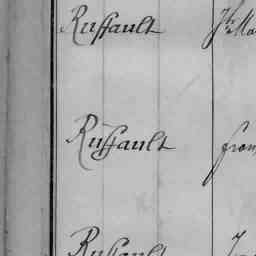 Ruffault
Ruffault from
Ruffault